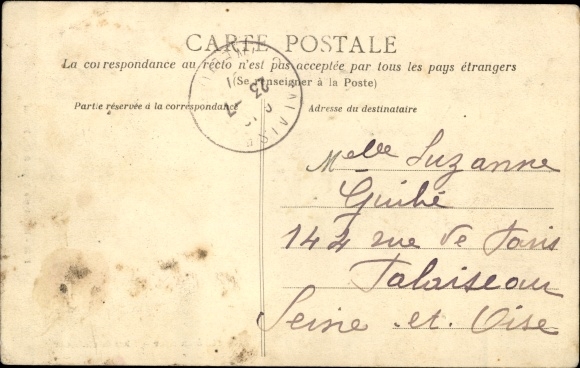 CARTE POSTALE
La correspondance au recto n'est pas acceptée par tous les pays étrangers
(Se renseigner à la Poste)
Partie réservée à la correspondance
Adresse du destinataire
Melle Suzanne
Guibé
144 rue de Paris
Palaiseau
Seine et Oise
23